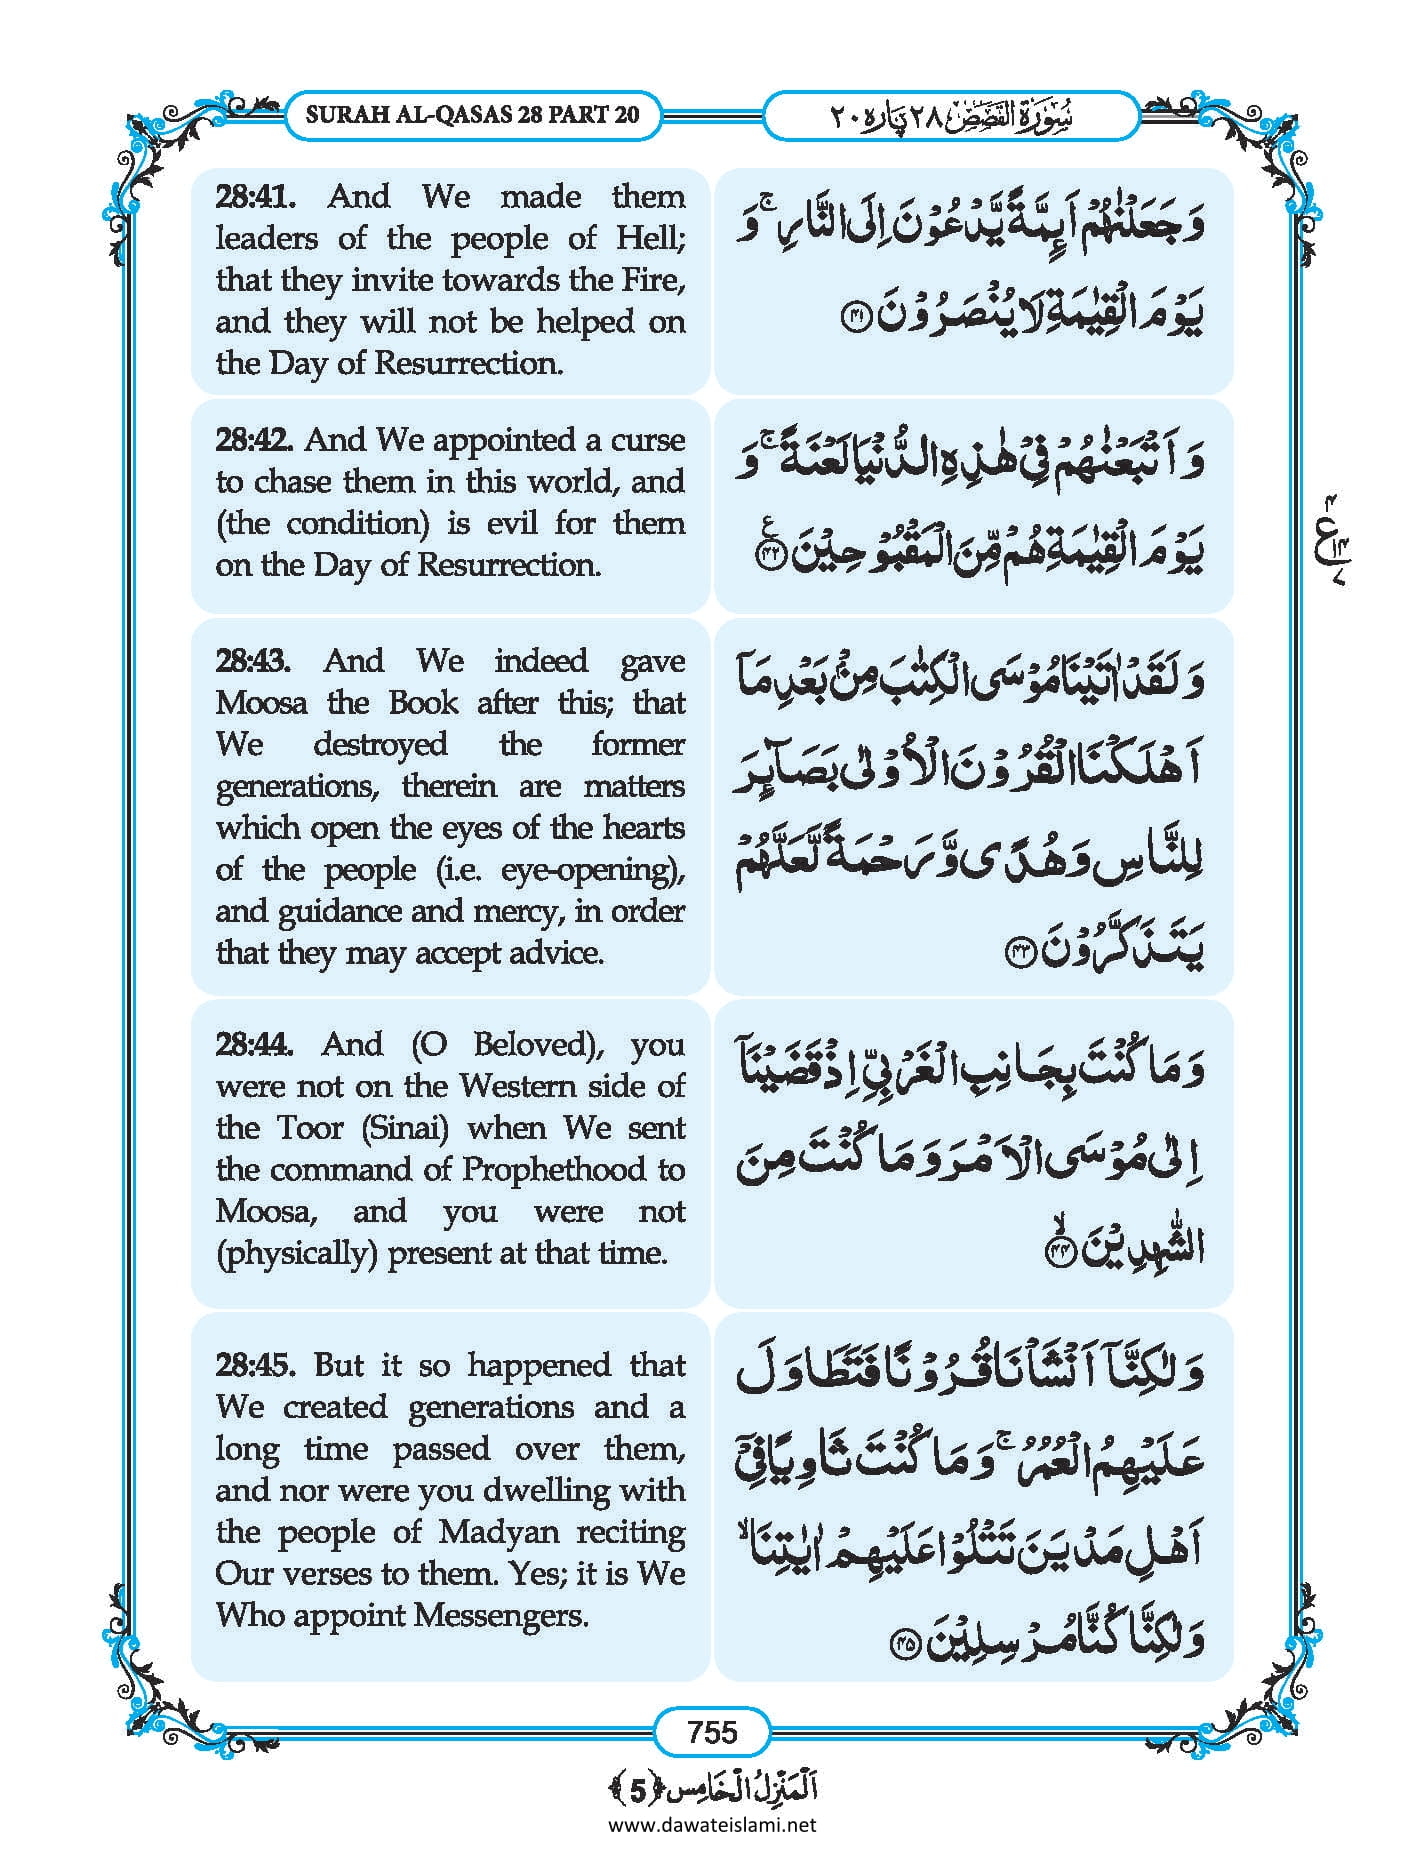 SURAH AL-QASAS 28 PART 20
سُوْرَةُ الْقَصَصِ ٢٨ پارہ ٢٠
28:41. And We made them
leaders of the people of Hell;
that they invite towards the Fire,
and they will not be helped on
the Day of Resurrection.
وَجَعَلْنٰهُمْ اَىِٕمَّةً یَّدْعُوْنَ اِلَى النَّارِ ۚ وَ
یَوْمَ الْقِیٰمَةِ لَا یُنْصَرُوْنَ ﴿۴۱﴾
28:42. And We appointed a curse
to chase them in this world, and
(the condition) is evil for them
on the Day of Resurrection.
وَ اَتْبَعْنٰهُمْ فِیْ هٰذِهِ الدُّنْیَا لَعْنَةً ۚ وَ
یَوْمَ الْقِیٰمَةِ هُمْ مِّنَ الْمَقْبُوْحِیْنَ ﴿۴۲﴾ ع
۴
ع
۱۴
۷
28:43. And We indeed gave
Moosa the Book after this; that
We destroyed the former
generations, therein are matters
which open the eyes of the hearts
of the people (i.e. eye-opening),
and guidance and mercy, in order
that they may accept advice.
وَ لَقَدْ اٰتَیْنَا مُوْسَى الْكِتٰبَ مِنْۢ بَعْدِ مَاۤ
اَهْلَكْنَا الْقُرُوْنَ الْاُوْلٰى بَصَآىِٕرَ
لِلنَّاسِ وَ هُدًى وَّ رَحْمَةً لَّعَلَّهُمْ
یَتَذَكَّرُوْنَ ﴿۴۳﴾
28:44. And (O Beloved), you
were not on the Western side of
the Toor (Sinai) when We sent
the command of Prophethood to
Moosa, and you were not
(physically) present at that time.
وَ مَا كُنْتَ بِجَانِبِ الْغَرْبِیِّ اِذْ قَضَیْنَاۤ
اِلٰى مُوْسَى الْاَمْرَ وَ مَا كُنْتَ مِنَ
الشّٰهِدِیْنَ ۙ﴿۴۴﴾
28:45. But it so happened that
We created generations and a
long time passed over them,
and nor were you dwelling with
the people of Madyan reciting
Our verses to them. Yes; it is We
Who appoint Messengers.
وَ لٰكِنَّاۤ اَنْشَاْنَا قُرُوْنًا فَتَطَاوَلَ
عَلَیْهِمُ الْعُمُرُ ۚ وَ مَا كُنْتَ ثَاوِیًا فِیْۤ
اَهْلِ مَدْیَنَ تَتْلُوْا عَلَیْهِمْ اٰیٰتِنَا ۙ
وَ لٰكِنَّا كُنَّا مُرْسِلِیْنَ ﴿۴۵﴾
755
اَلْمَنْزِلُ الْخَامِس ﴿5﴾
www.dawateislami.net